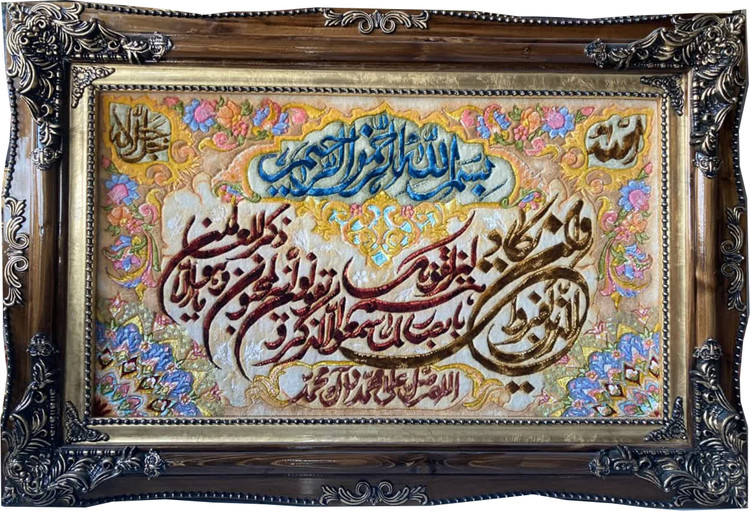 بسم الله الرحمن الرحيم
وان يكاد الذين كفروا ليزلقونك بابصارهم لما سمعوا الذكر و يقولون انه لمجنون و ما هو الا ذكر للعلمين
اللهم صل على محمد و آل محمد